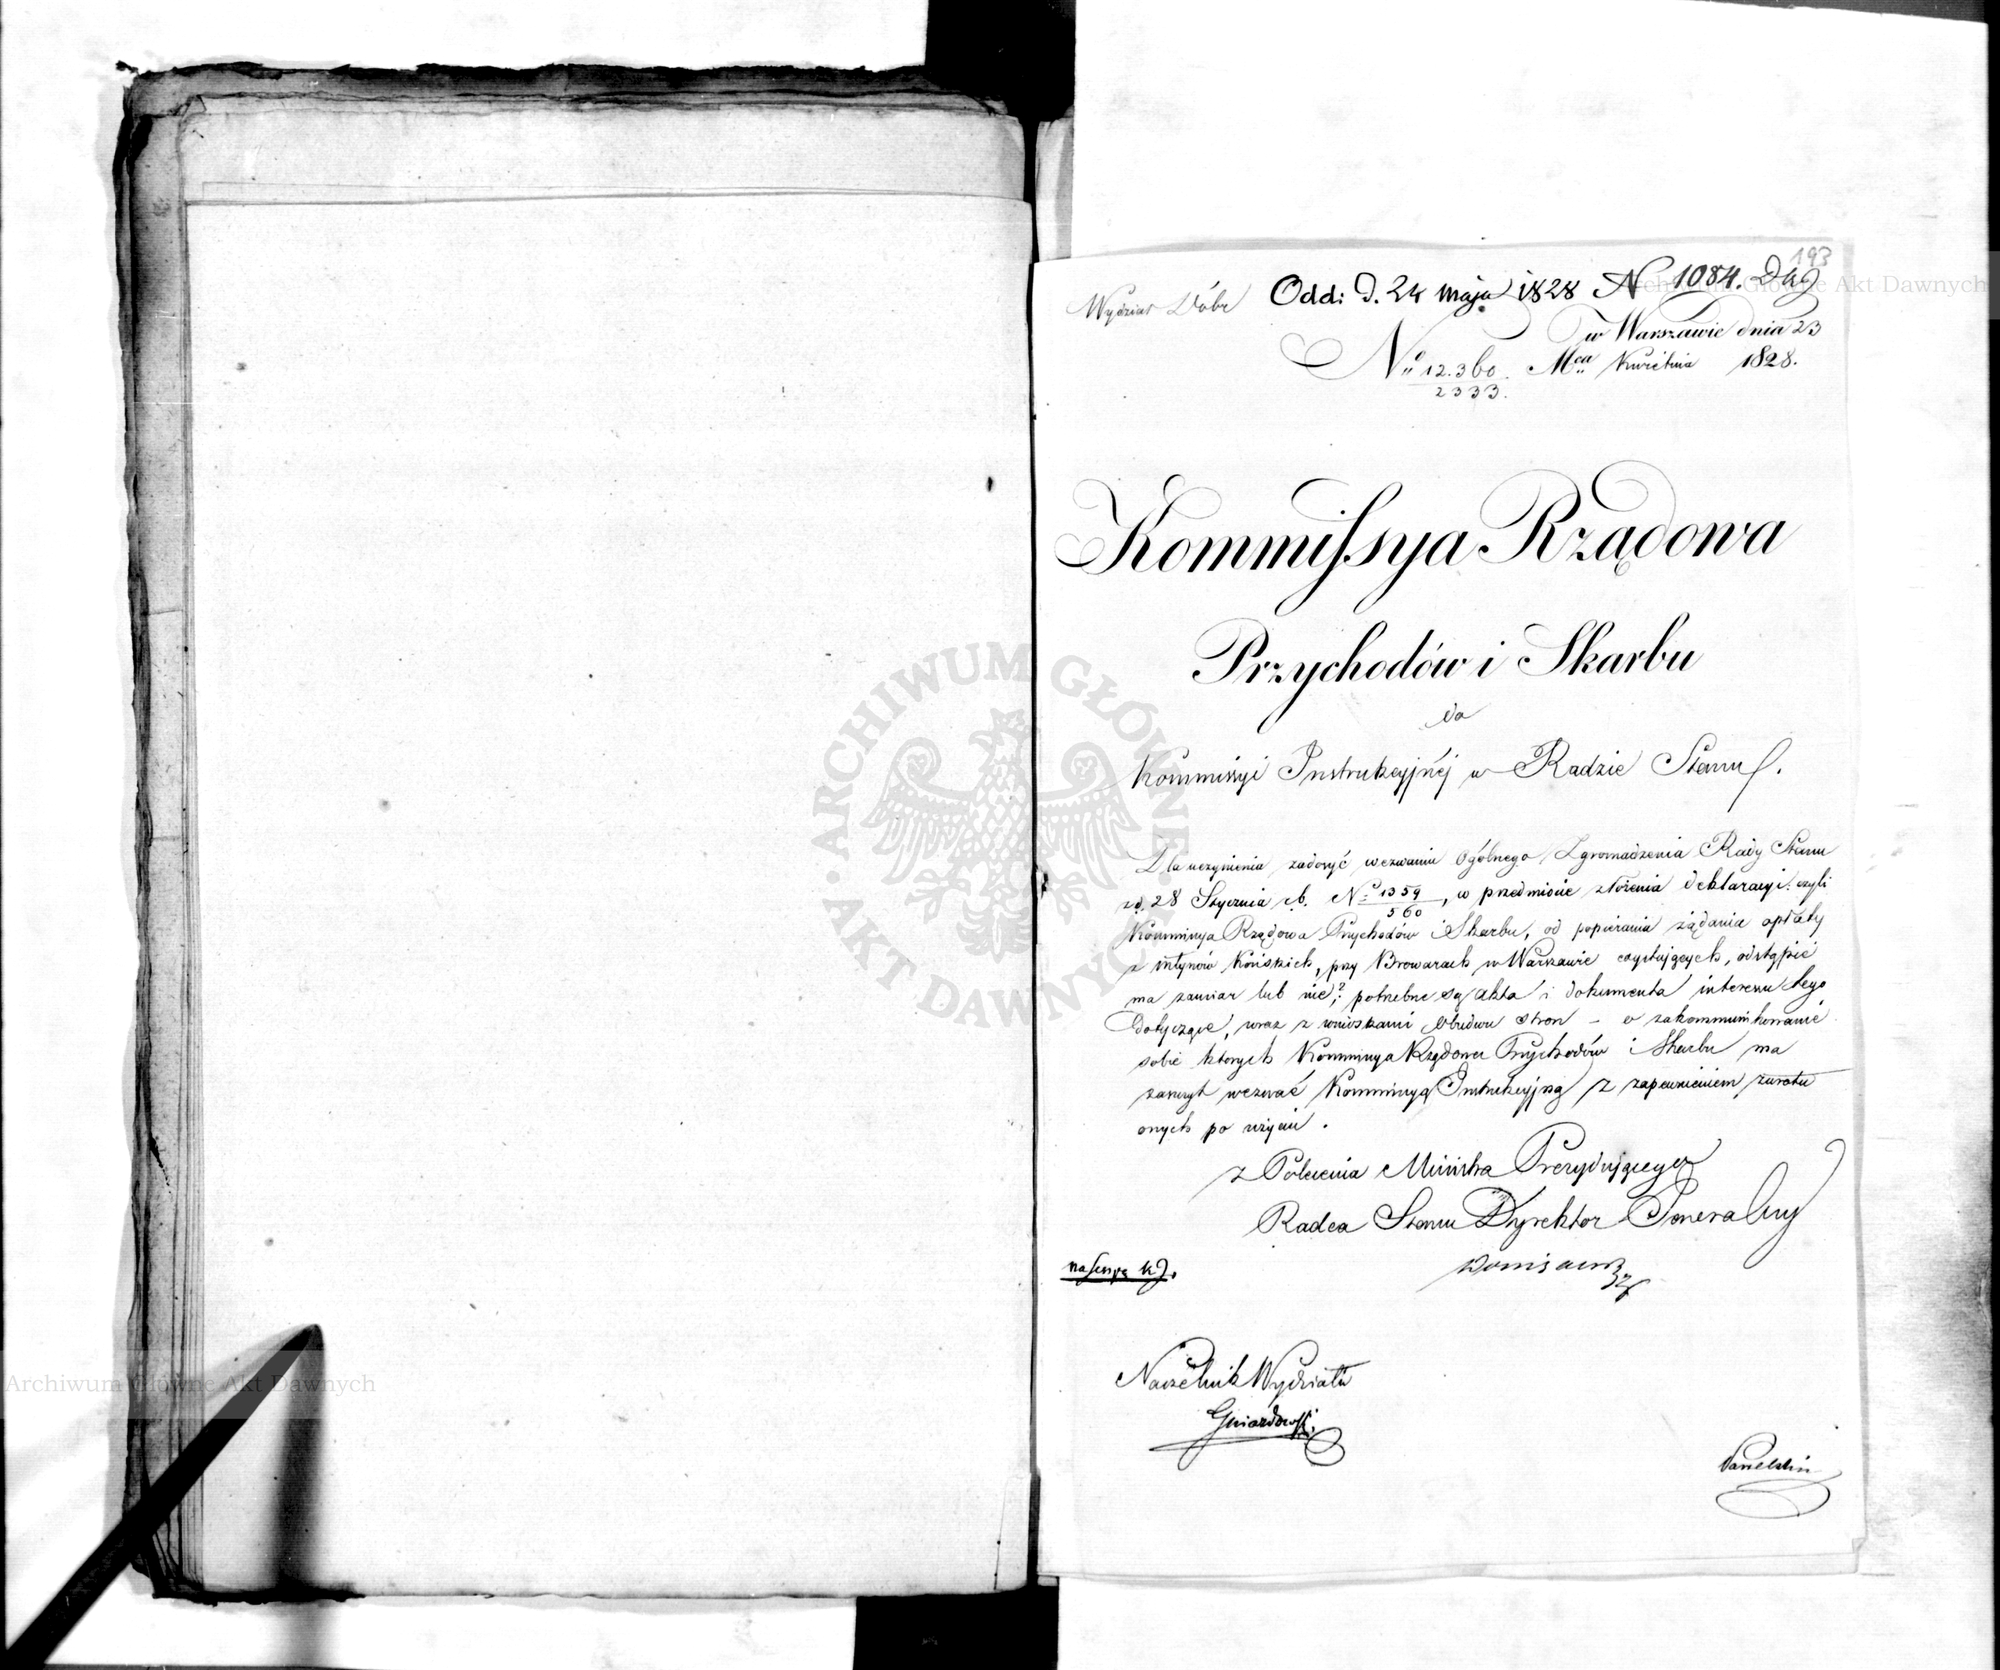 193
Wydział Dóbr Odd: d. 24 maja 1828 N 1084. Dkg
w Warszawie dnia 23
No 12.360. Mca Kwietnia 1828.
2333.
Kommissya Rządowa
Przychodów i Skarbu
do
Kommissyi Instrukcyjnéj w Radzie Stanu.
Dla uczynienia zadosyć wezwaniu Ogólnego Zgromadzenia Rady Stanu
z d. 28 Stycznia r.b. No 1359/560, w przedmiocie złożenia deklaracyi: czyli
Kommissya Rządowa Przychodów i Skarbu, od popierania żądania opłaty
z młynów Końskich, przy Browarach w Warszawie exystujących, odstąpić
ma zamiar lub nie?; potrzebne są akta i dokumenta interessu tego
dotyczące, wraz z wnioskami obudwu stron – o zakommunikowanie
sobie których Kommissya Rządowa Przychodów i Skarbu ma
zaszczyt wezwać Kommissyą Instrukcyjną z zapewnieniem zwrotu
onych po użyciu.
z Polecenia Ministra Prezydującego
Radca Stanu Dyrektor Generalny
Naczelnik Wydziału
Gniazdowski
ARCHIWUM GŁÓWNE AKT DAWNYCH
Archiwum Główne Akt Dawnych
Archiwum Główne Akt Dawnych